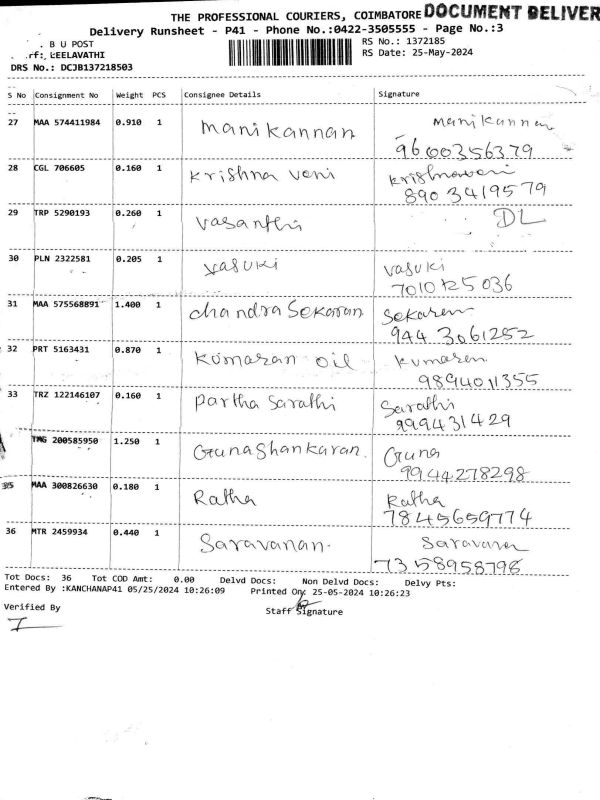 THE PROFESSIONAL COURIERS, COIMBATORE DOCUMENT DELIVER
Delivery Runsheet - P41 - Phone No.:0422-3505555 - Page No.:3
B U POST
RS No.: 1372185
LEELAVATHI
RS Date: 25-May-2024
DRS No.: DCJB137218503
S No Consignment No Weight PCS Consignee Details Signature
27 MAA 574411984 0.910 1 Manikannan Manikannan
9600356379
28 CGL 706605 0.160 1 Krishna veni Krishnaveni
8903419579
29 TRP 5290193 0.260 1 vasanthi DL
30 PLN 2322581 0.205 1 vasuki vasuki
7010725036
31 MAA 575568891 1.400 1 chandra Sekaran Sekaren
944 3061252
32 PRT 5163431 0.870 1 Kumaran oil Kumaren
9894011355
33 TRZ 122146107 0.160 1 Partha Sarathi Sarathi
999431429
TMG 200585950 1.250 1 Gunashankaran. Guna
9944278298
35 MAA 300826630 0.180 1 Ratha Ratha
7845659774
36 MTR 2459934 0.440 1 Saravanan. Saravanan
7358958798
Tot Docs: 36 Tot COD Amt: 0.00 Delvd Docs: Non Delvd Docs: Delvy Pts:
Entered By :KANCHANAP41 05/25/2024 10:26:09 Printed On: 25-05-2024 10:26:23
Verified By
Staff Signature